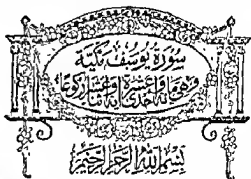 سُوْرَةُ يُوسُفَ مَكِّيَّةٌ
وَهِيَ مِائَةٌ وَإِحْدَى عَشَرَةَ آيَةً وَاثْنَا عَشَرَ رُكُوعًا
بِسْمِ اللهِ الرَّحْمٰنِ الرَّحِيْمِ